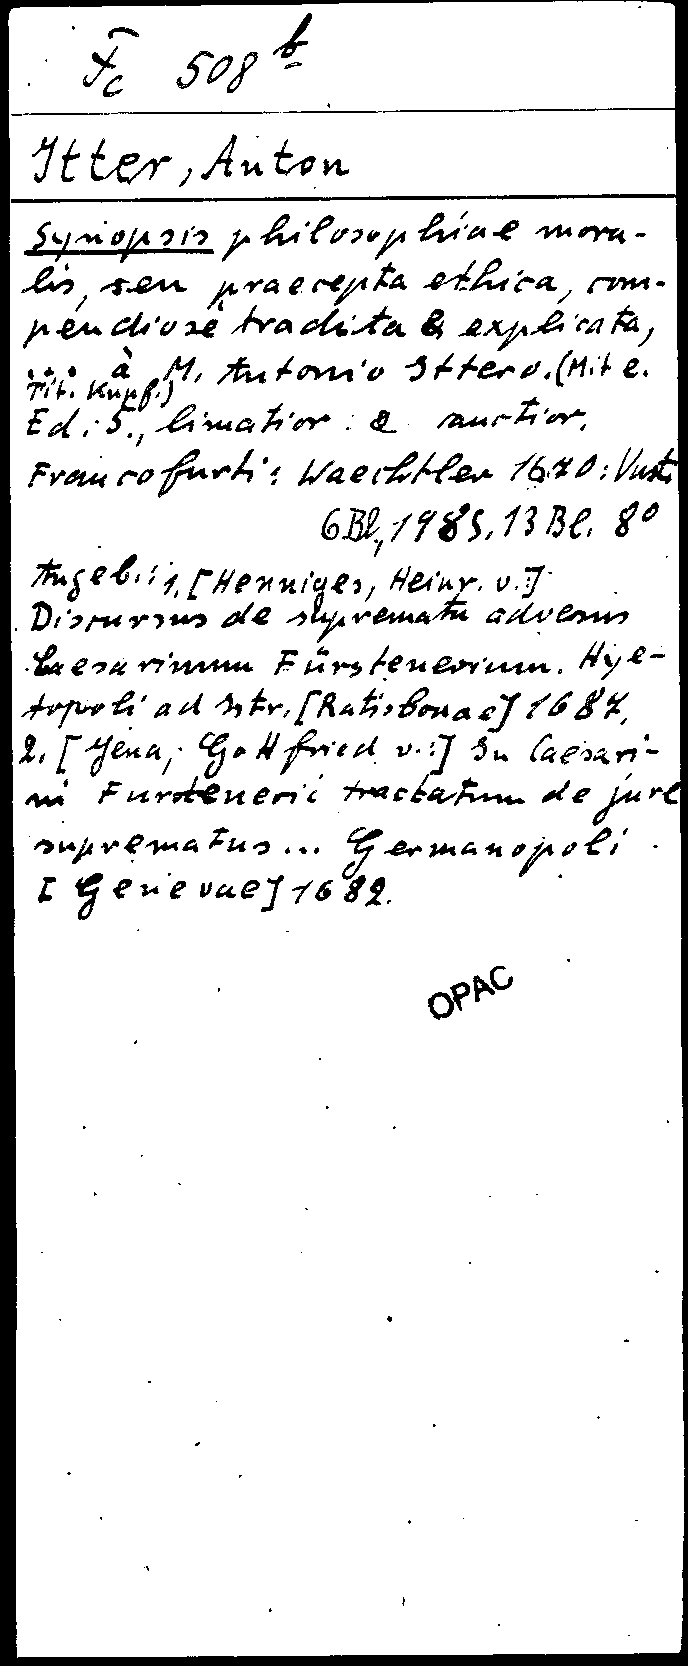 Fc 508 b
Itter, Anton
Synopsis philosophiae mora-
lis, seu praecepta ethica, com-
pendiosè tradita & explicata,
... à M. Antonio Ittero. (Mit e.
Tit. Kupf.)
Ed. 5., limatior & auctior.
Francofurti: Waechtler 1670: Vust.
6 Bl., 198 S. 13 Bl. 8°
Angeb.: 1. [Henniges, Heinr. v.:]
Discursus de suprematu adversus
Caesarinum Fürstenerium. Hye-
topoli ad Istr. [Ratisbonae] 1687.
2. [Jena, Gottfried v.:] In Caesari-
ni Furstenerii tractatum de jure
suprematus... Germanopoli
[Genevae] 1682.
OPAC